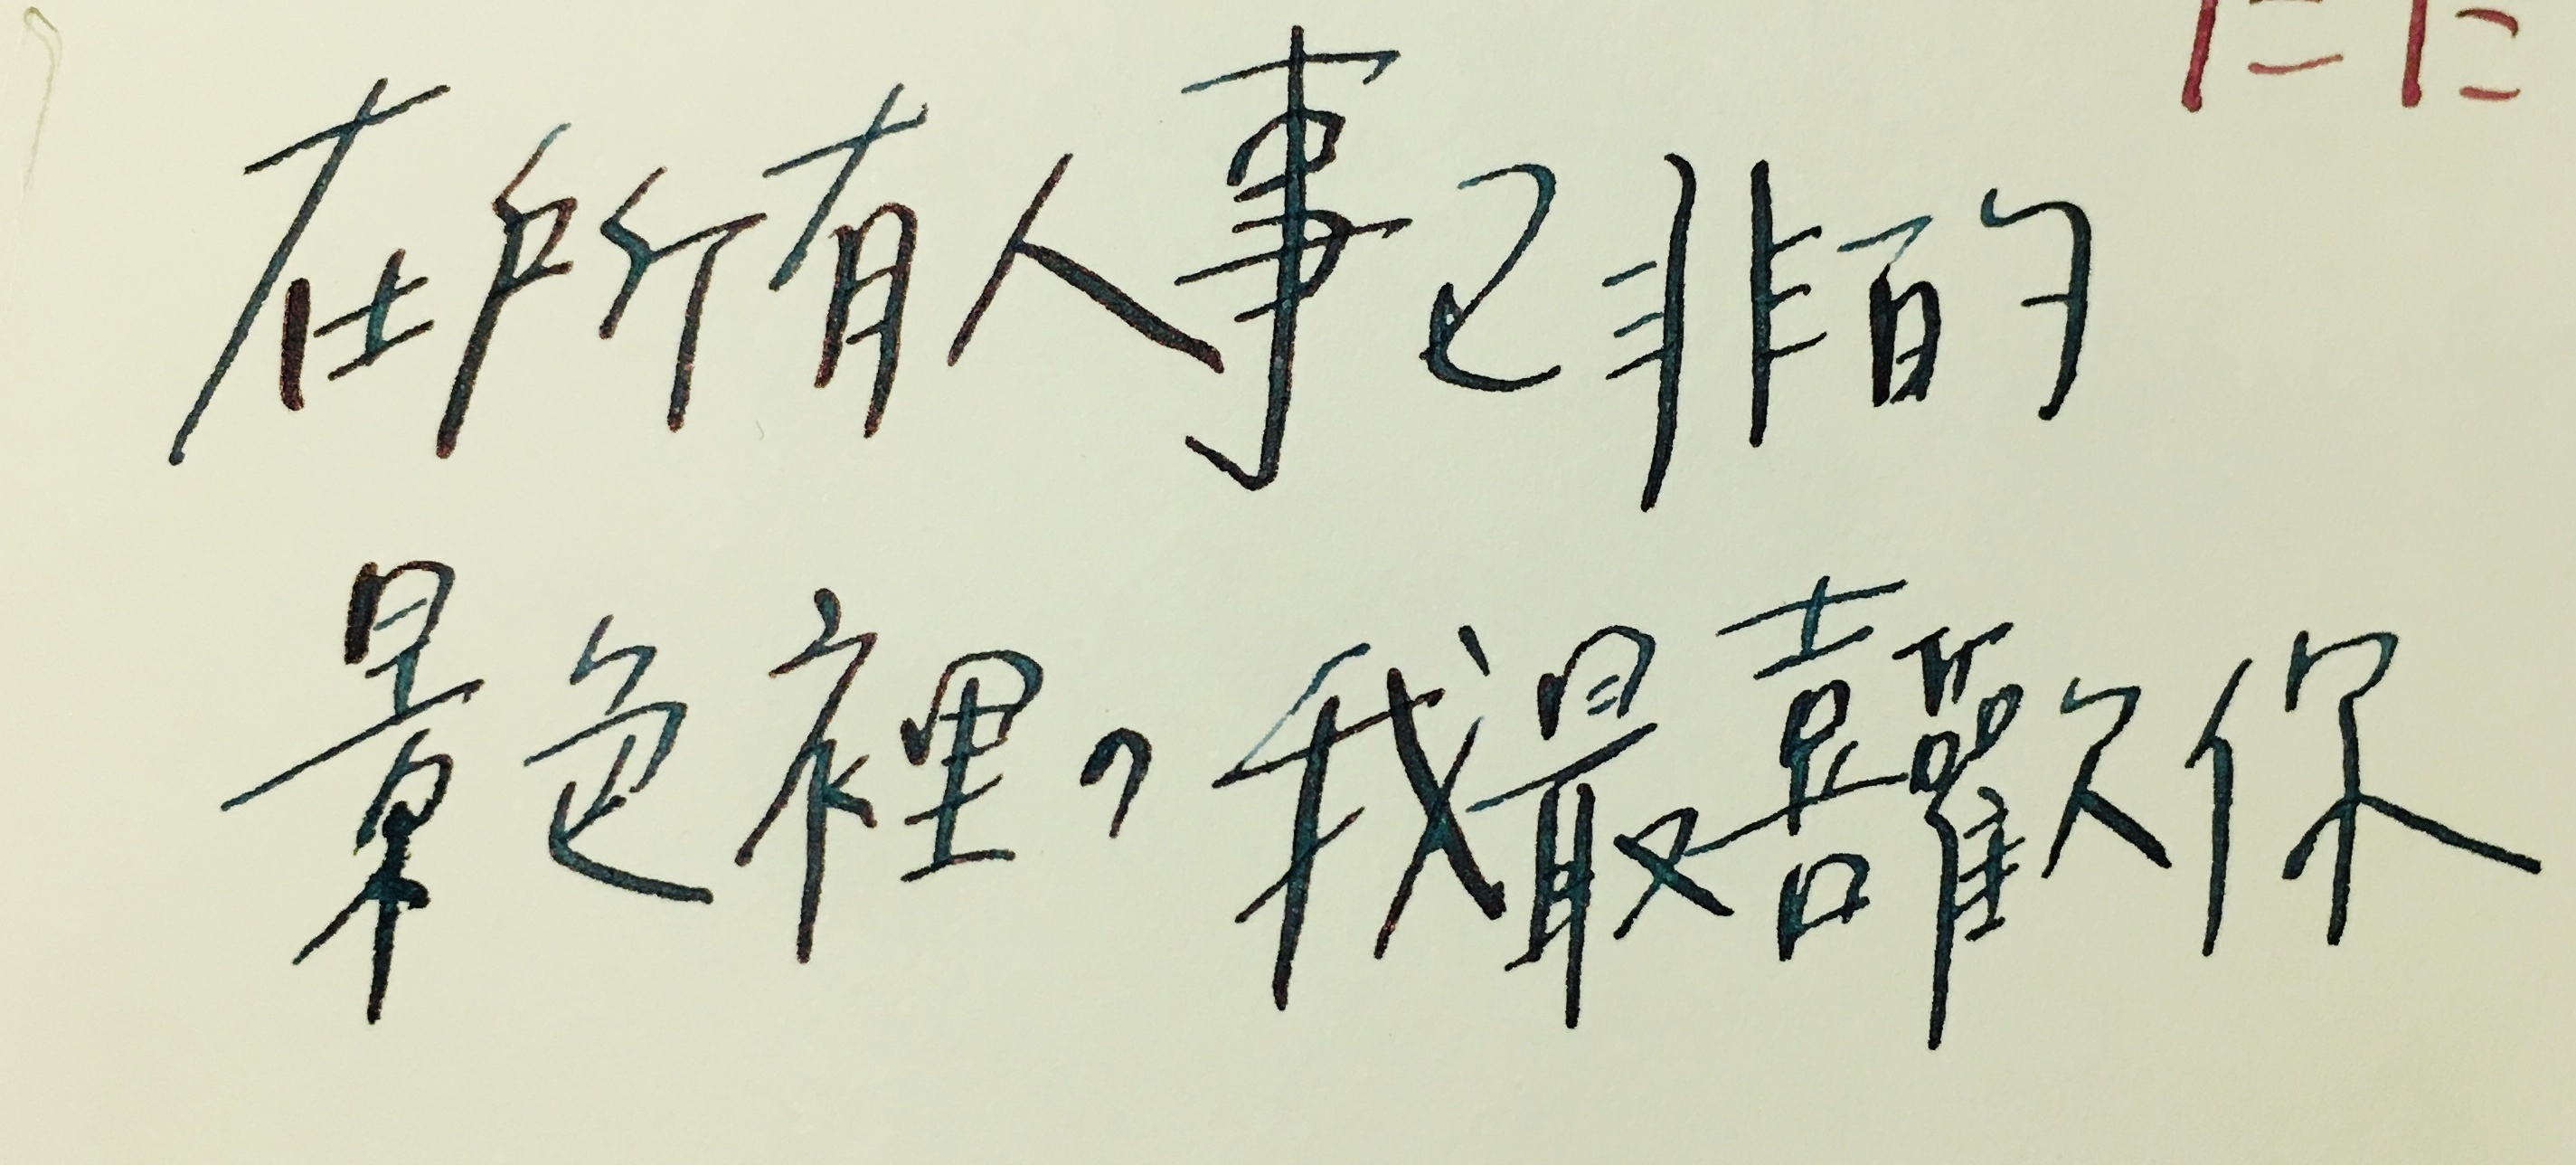 在所有人事已非的
景色裡，我最喜歡你